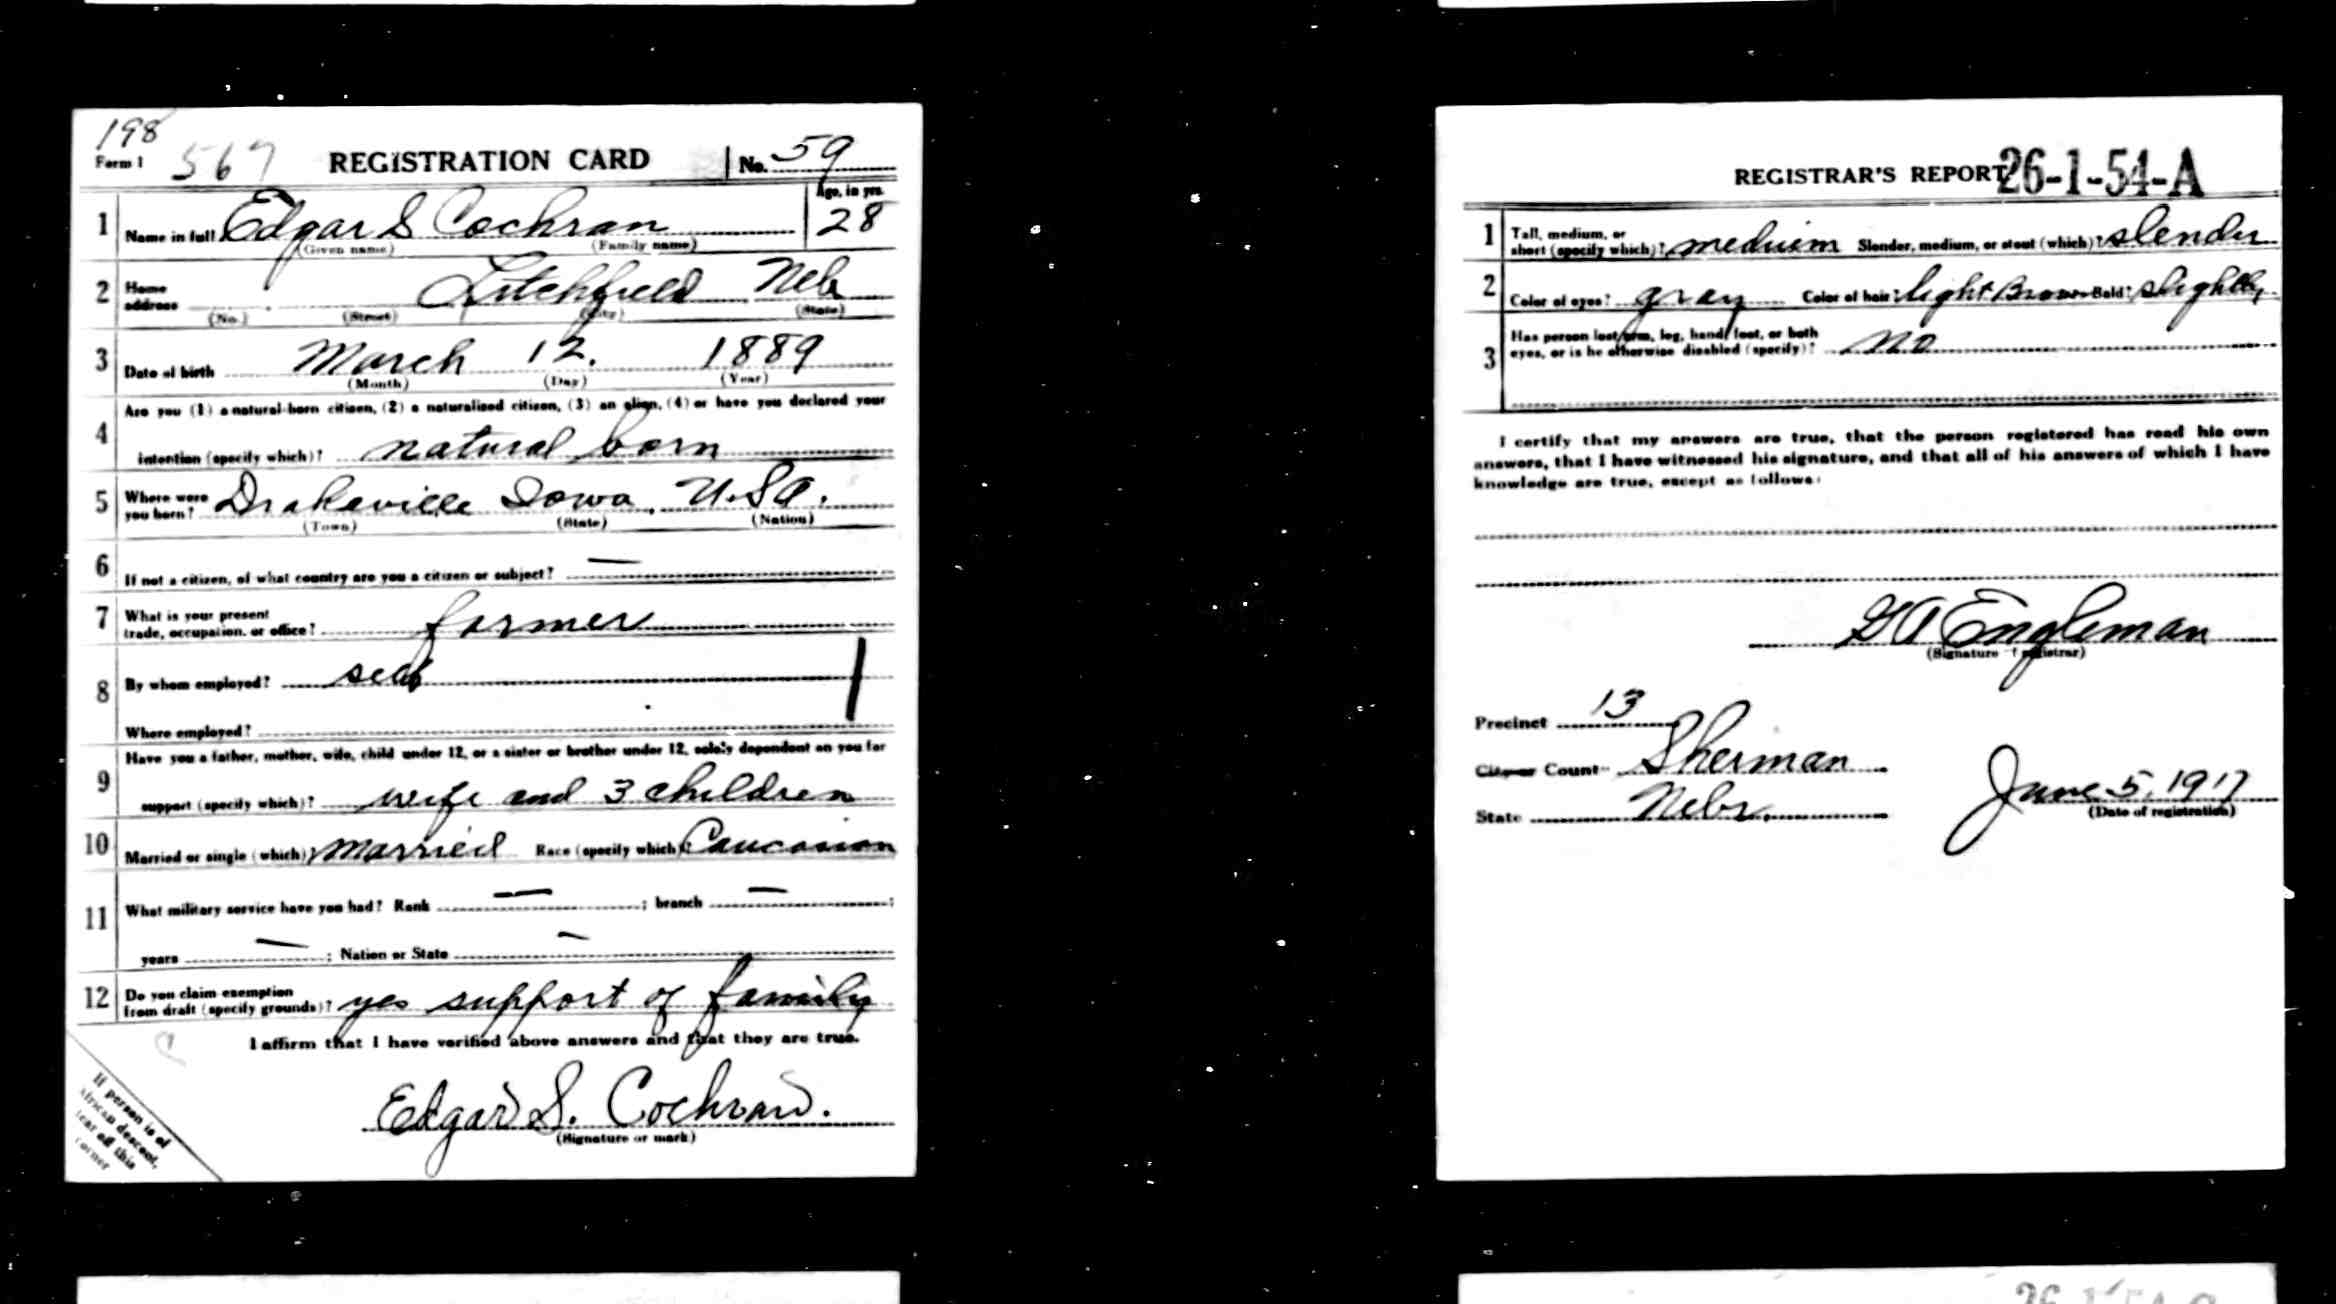 198
Form 1 567 REGISTRATION CARD No. 59
1 Name in full Edgar S Cochran Age, in yrs. 28
(Given name) (Family name)
2 Home address Litchfield Neb
(No.) (Street) (City) (State)
3 Date of birth March 12. 1889
(Month) (Day) (Year)
4 Are you (1) a natural-born citizen, (2) a naturalized citizen, (3) an alien, (4) or have you declared your
intention (specify which)? natural born
5 Where were you born? Drakeville Iowa, U.S.A.
(Town) (State) (Nation)
6 If not a citizen, of what country are you a citizen or subject? —
7 What is your present trade, occupation, or office? farmer
8 By whom employed? self
Where employed?
9 Have you a father, mother, wife, child under 12, or a sister or brother under 12, solely dependent on you for
support (specify which)? wife and 3 children
10 Married or single (which)? married Race (specify which)? Caucasian
11 What military service have you had? Rank — ; branch — ;
years — ; Nation or State —
12 Do you claim exemption from draft (specify grounds)? yes support of family
I affirm that I have verified above answers and that they are true.
Edgar S. Cochran.
(Signature or mark)
If person is of
African descent,
tear off this
corner
REGISTRAR'S REPORT 26-1-54-A
1 Tall, medium, or short (specify which)? medium Slender, medium, or stout (which)? slender
2 Color of eyes? gray Color of hair? light Brown Bald? slightly
3 Has person lost arm, leg, hand, foot, or both
eyes, or is he otherwise disabled (specify)? no
I certify that my answers are true, that the person registered has read his own
answers, that I have witnessed his signature, and that all of his answers of which I have
knowledge are true, except as follows:
G A Engleman
(Signature of registrar)
Precinct 13
City or County Sherman
State Nebr. June 5, 1917
(Date of registration)